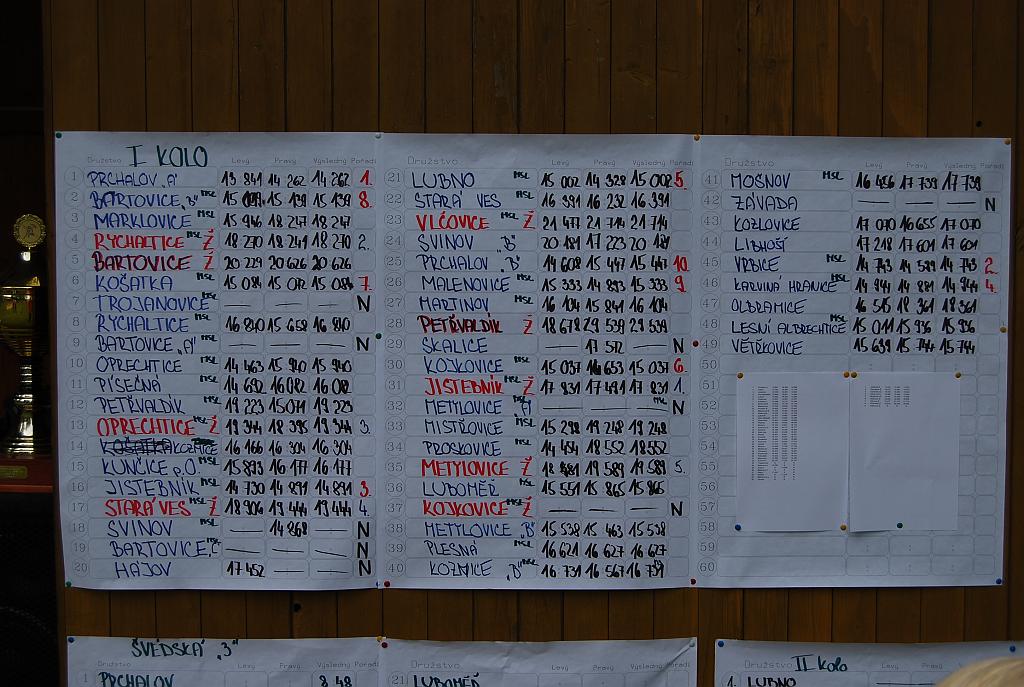 I KOLO
Družstvo Levý Pravý Výsledný Pořadí
1 PRCHALOV "A" 13 841 14 262 14 262 1.
2 BARTOVICE "B" MSL 15 139 15 139 8.
3 MARKLOVICE MSL 15 946 18 247 18 247
4 RYCHALTICE MSL Ž 18 270 18 241 18 270 2.
5 BARTOVICE MSL Ž 20 229 20 626 20 626
6 KOŠATKA MSL 15 084 15 072 15 084 7.
7 TROJANOVICE — — — N
8 RYCHALTICE MSL 16 840 15 658 16 840
9 BARTOVICE "A" MSL — — — N
10 OPRECHTICE MSL 14 463 15 940 15 940
11 PÍSEČNÁ MSL 14 692 16 082 16 082
12 PETŘVALDÍK MSL 19 223 15 071 19 223
13 OPRECHTICE MSL Ž 19 344 18 395 19 344 3.
14 KOZMICE 16 166 16 304 16 304
15 KUNČICE p.O. MSL 15 893 16 177 16 177
16 JISTEBNÍK MSL 14 730 14 891 14 891 3.
17 STARÁ VES MSL Ž 18 906 19 444 19 444 4.
18 SVINOV MSL — 14 868 — N
19 BARTOVICE "C" MSL — — — N
20 HÁJOV 17 452 — — N
Družstvo Levý Pravý Výsledný Pořadí
21 LUBNO MSL 15 002 14 328 15 002 5.
22 STARÁ VES MSL 16 391 16 232 16 391
23 VLČOVICE MSL Ž 21 477 21 714 21 714
24 SVINOV "B" MSL 20 181 17 223 20 181
25 PRCHALOV "B" 14 608 15 447 15 447 10.
26 MALENOVICE MSL 15 333 14 893 15 333 9.
27 MARTINOV MSL 16 104 15 841 16 104
28 PETŘVALDÍK MSL Ž 18 678 29 539 29 539
29 SKALICE — 17 572 — N
30 KOJKOVICE MSL 15 037 14 653 15 037 6.
31 JISTEBNÍK MSL Ž 17 831 17 491 17 831 1.
32 METYLOVICE "A" — — — MSL N
33 MISTŘOVICE MSL 15 298 19 248 19 248
34 PROSKOVICE MSL 14 454 18 552 18 552
35 METYLOVICE MSL Ž 18 581 19 589 19 589 5.
36 LUBOMĚŘ MSL 15 551 15 865 15 865
37 KOJKOVICE MSL Ž — — — N
38 METYLOVICE "B" MSL 15 538 15 463 15 538
39 PLESNÁ MSL 16 621 16 627 16 627
40 KOZMICE "B" MSL 16 731 16 567 16 731
Družstvo Levý Pravý Výsledný Pořadí
41 MOŠNOV MSL 16 456 17 739 17 739
42 ZÁVADA — — — N
43 KOZLOVICE 17 070 16 655 17 070
44 LIBHOŠŤ 17 218 17 601 17 601
45 VRBICE MSL 14 743 14 589 14 743 2.
46 KARVINÁ HRANICE MSL 14 944 14 881 14 944 4.
47 OLBRAMICE 16 515 18 361 18 361
48 LESNÍ ALBRECHTICE MSL 15 011 15 936 15 936
49 VĚTŘKOVICE 15 639 15 744 15 744
50
51
52
53
54
55
56
57
58
59
60
ŠVÉDSKÁ "3"
Družstvo Levý Pravý Výsledný Pořadí
1 PRCHALOV 8 48
Družstvo Levý Pravý Výsledný Pořadí
21 LUBOMĚŘ
II kolo
Družstvo Levý Výsledný Pořadí
1. LUBNO